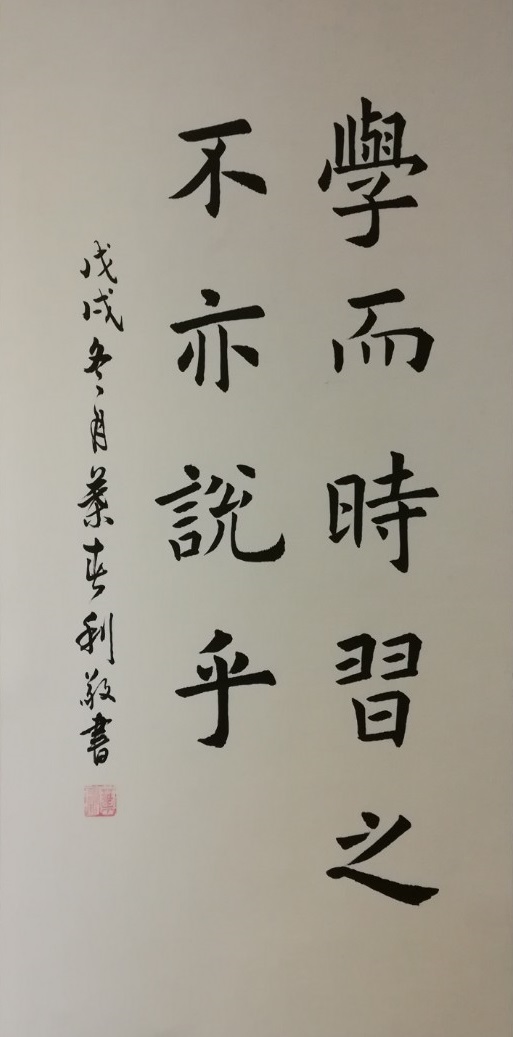 學而時習之
不亦說乎
戊戌冬月葉春利敬書